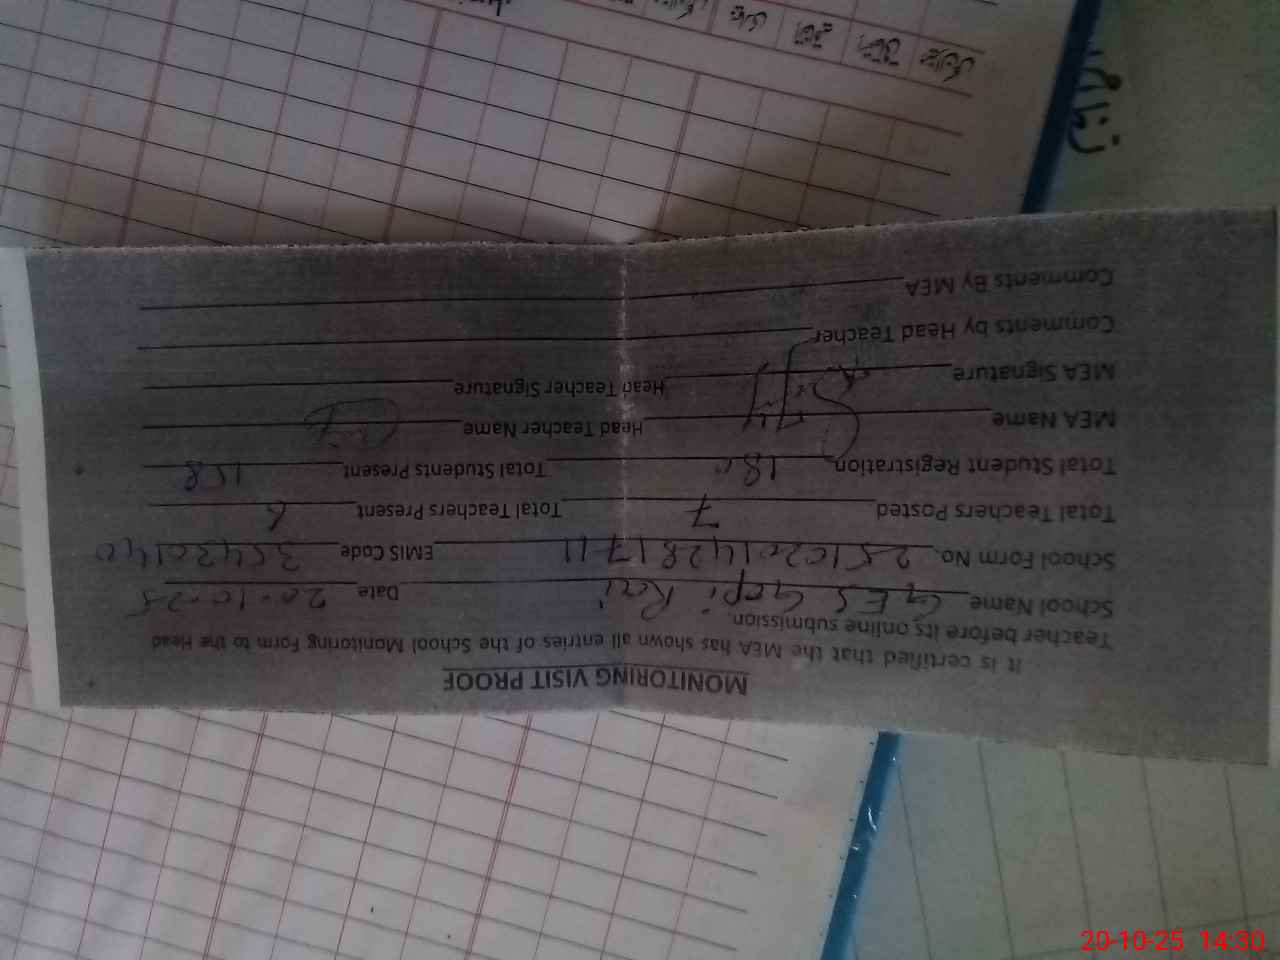 MONITORING VISIT PROOF
It is certified that the MEA has shown all entries of the School Monitoring Form to the Head
Teacher before its online submission.
School Name GES Gopi Rai Date 20-10-25
School Form No. 25102014281711 EMIS Code 35430140
Total Teachers Posted 7 Total Teachers Present 6
Total Student Registration 180 Total Students Present 158
MEA Name Head Teacher Name
MEA Signature Head Teacher Signature
Comments by Head Teacher
Comments By MEA
20-10-25 14:30